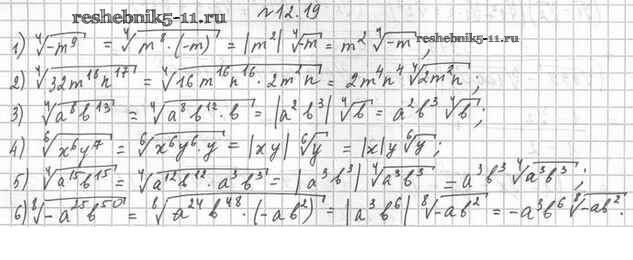 reshebnik5-11.ru
№12.19
reshebnik5-11.ru
1) ⁴√(-m⁹) = ⁴√(m⁸·(-m)) = |m²| ⁴√(-m) = m² ⁴√(-m);
2) ⁴√(32m¹⁸n¹⁷) = ⁴√(16m¹⁶n¹⁶·2m²n) = 2m⁴n⁴ ⁴√(2m²n);
3) ⁴√(a⁸b¹³) = ⁴√(a⁸b¹²·b) = |a²b³| ⁴√b = a²b³ ⁴√b;
4) ⁶√(x⁶y⁷) = ⁶√(x⁶y⁶·y) = |xy| ⁶√y = |x|y ⁶√y;
5) ⁴√(a¹⁵b¹⁵) = ⁴√(a¹²b¹²·a³b³) = |a³b³| ⁴√(a³b³) = a³b³ ⁴√(a³b³);
6) ⁸√(-a²⁵b⁵⁰) = ⁸√(a²⁴b⁴⁸·(-ab²)) = |a³b⁶| ⁸√(-ab²) = -a³b⁶ ⁸√(-ab²).